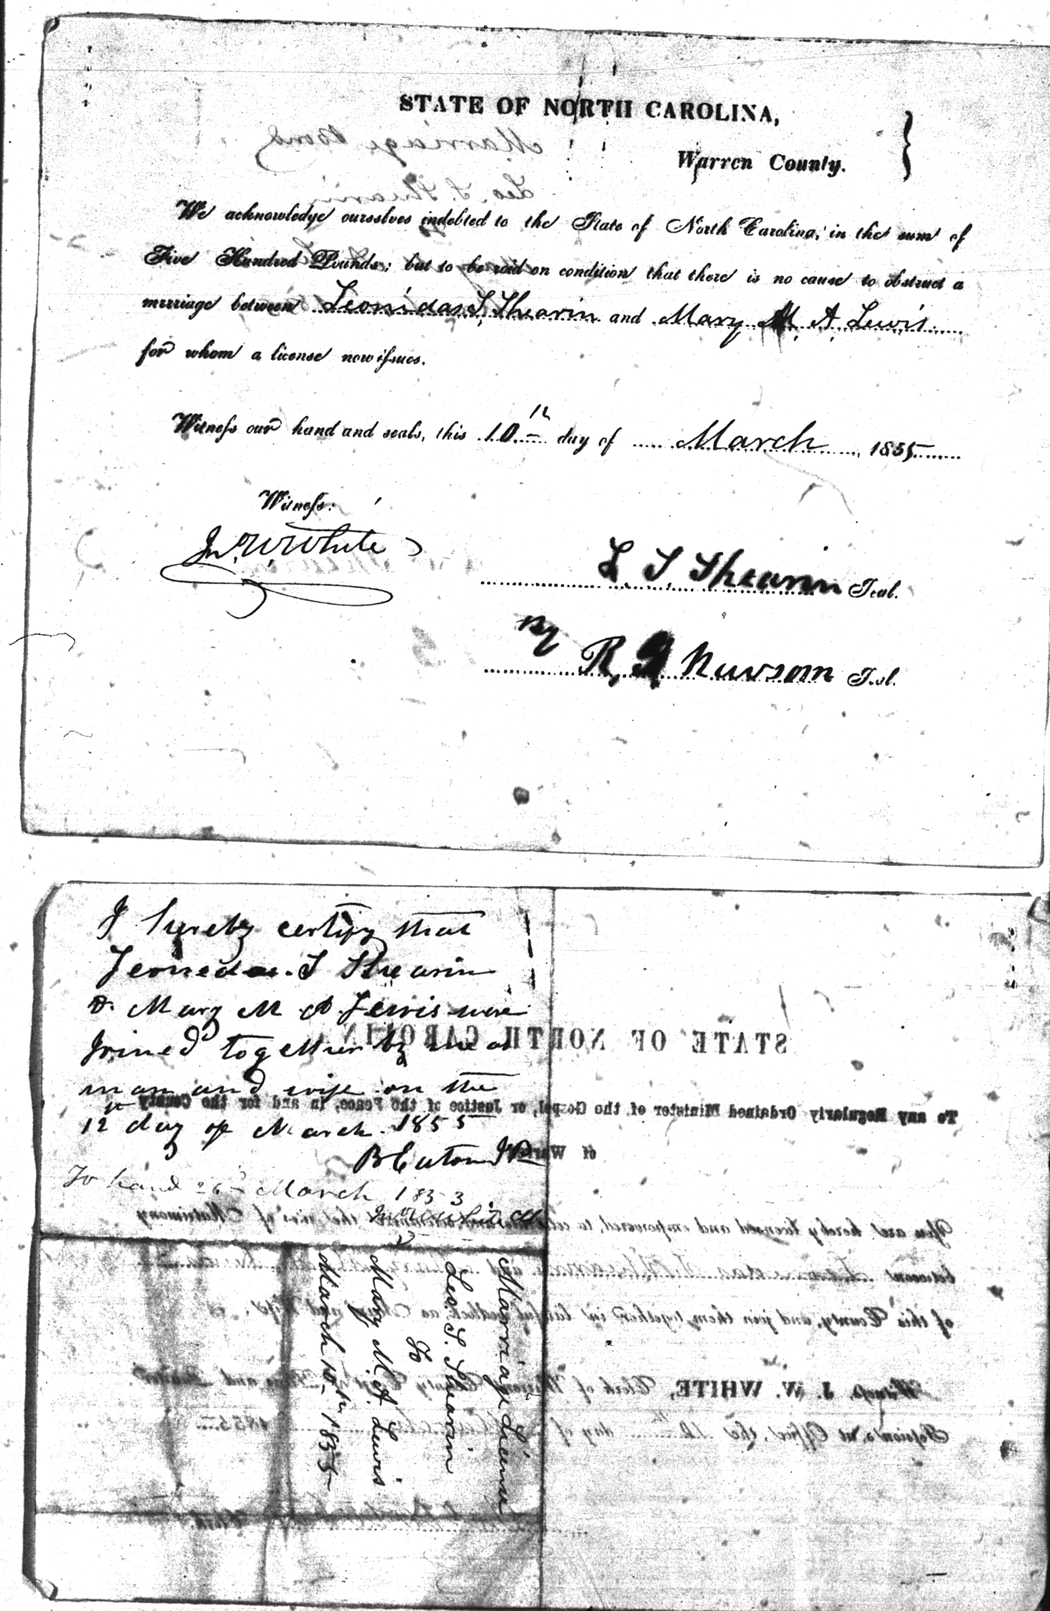 STATE OF NORTH CAROLINA,
Warren County.
We acknowledge ourselves indebted to the State of North Carolina, in the sum of
Five Hundred Pounds; but to be void on condition that there is no cause to obstruct a
marriage between Leonidas S. Shearin and Mary M. A. Lewis
for whom a license now issues.
Witness our hand and seals, this 10th day of March 1855
Witness:
Jn. W. White
L. S. Shearin Seal.
By
R. Newsom Seal.
I hereby certify that
Leonedas. S Shearin
& Mary M A Lewis were
Joined together by me as
man and wife on the
12th day of March 1855
B Eaton JP
To hand 26th March 1853
Marriage License
Leo. S. Shearin
&
Mary M. A. Lewis
March 10th 1855
STATE OF NORTH CAROLINA
To any Regularly Ordained Minister of the Gospel, or Justice of the Peace, in and for the County
of Warren
You are hereby licensed and empowered to celebrate the rites of Matrimony
between Leonidas S. Shearin and
of this County, and join them together in lawful wedlock as Man and Wife.
Witness J. W. WHITE, Clerk of Warren County Court of Pleas and Quarter
Sessions, at Office, the 10th day of March 1855
Clerk.